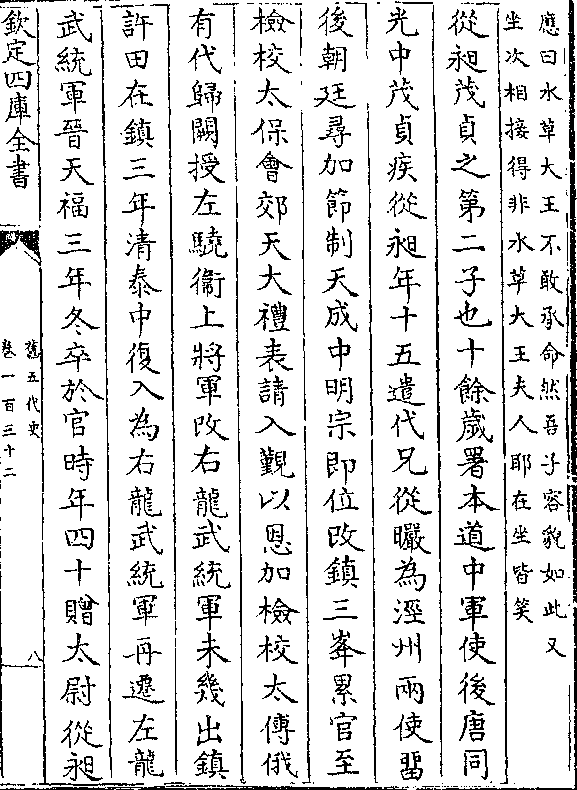 應曰水草大王不敢承命然吾子容貌如此又
坐次相接得非水草大王夫人耶在坐皆笑
從昶茂貞之第二子也十餘歲署本道中軍使後唐同
光中茂貞疾從昶年十五遣代兄從曮為涇州兩使留
後朝廷尋加節制天成中明宗即位改鎮三峯累官至
檢校太保會郊天大禮表請入覲以恩加檢校太傅俄
有代歸闕授左驍衞上將軍改右龍武統軍未幾出鎮
許田在鎮三年清泰中復入為右龍武統軍再遷左龍
武統軍晉天福三年冬卒於官時年四十贈太尉從昶
欽定四庫全書
舊五代史
卷一百三十二
八